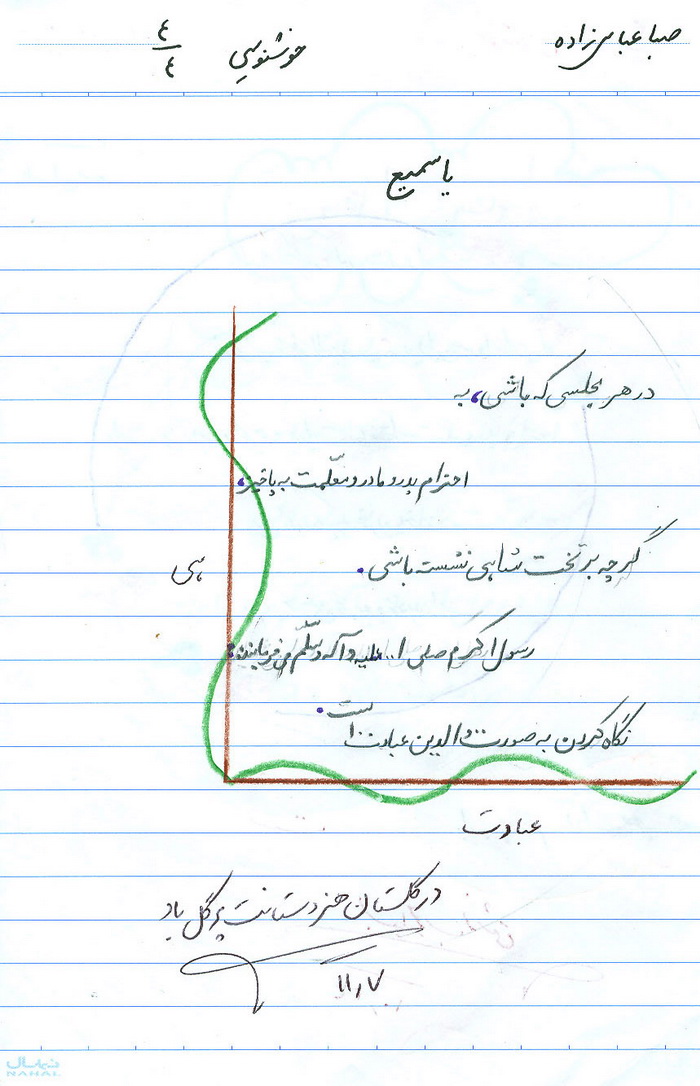 صبا عباس‌زاده
خوشنویسی
٤/٤
یا سمیع
در هر مجلسی که باشی، به
احترام پدر و مادر و معلّمت به پاخیز،
گرچه بر تخت شاهی نشسته باشی.
هی
رسول اکرم صلی ا... علیه و آله و سلّم می‌فرمایند:
نگاه کردن به صورت والدین عبادت است.
عبادت
در گلستان هنر دستانت پر گل باد
۱۱٫۷
نهال
NAHAL